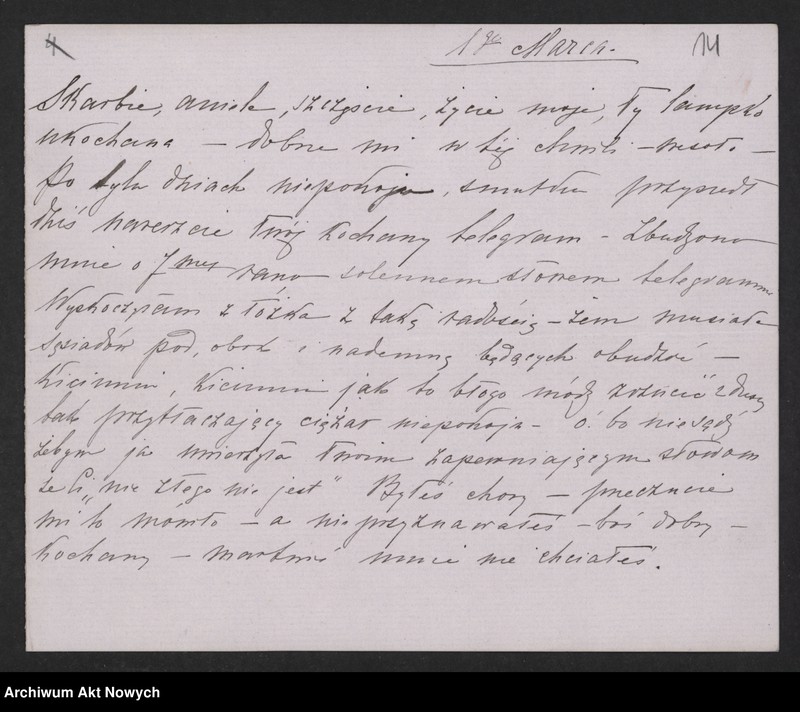 4
1go Marca.
14
Skarbie, aniele, szczęście, życie moje, Ty lampko
ukochana – dobrze mi w tej chwili – wesoło –
Po tylu dniach niepokoju, smutku przyszedł
dziś nareszcie Twój kochany telegram – Zbudzono
mnie o 7mej rano solennem słowem telegramm
Wyskoczyłam z łóżka z taką radością – żem musiała
sąsiadów pod, obok i nademną będących obudzić –
Kiciuniu, Kiciuniu jak to błogo módz zrzucić z duszy
tak przytłaczający ciężar niepokoju – o! bo nie sądź
żebym ja uwierzyła Twoim zapewniającym słowom
że Ci „nic złego nie jest” Byłeś chory – przeczucie
mi to mówiło – a nie przyznawałeś – boś dobry –
kochany – martwić mnie nie chciałeś.
Archiwum Akt Nowych